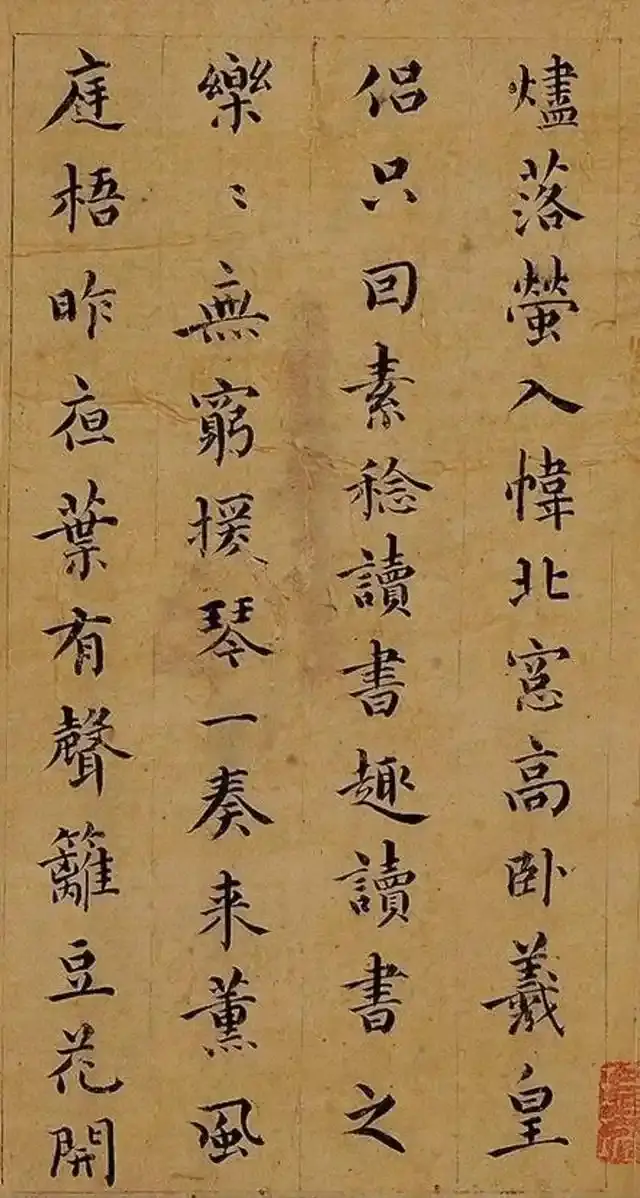 燼落螢入幃北窻高卧羲皇
侣只回素稔讀書趣讀書之
樂〻無窮援琴一奏来薰風
庭梧昨夜葉有聲籬豆花開